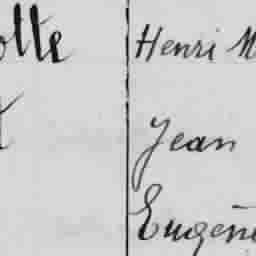 otte Henri M
t Jean
Eugène